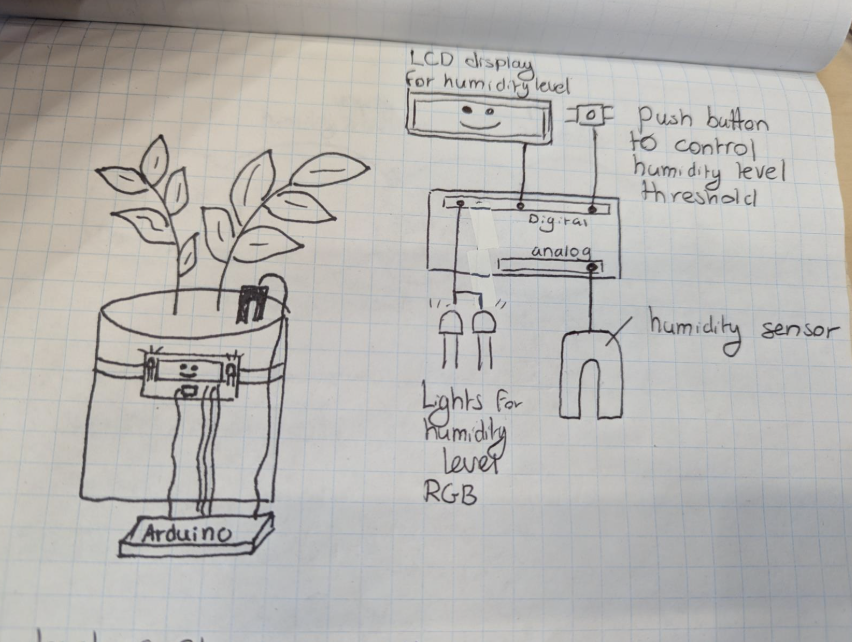 LCD display
for humidity level
Push button
to control
humidity level
threshold
Digital
analog
humidity sensor
Lights for
humidity
level
RGB
Arduino